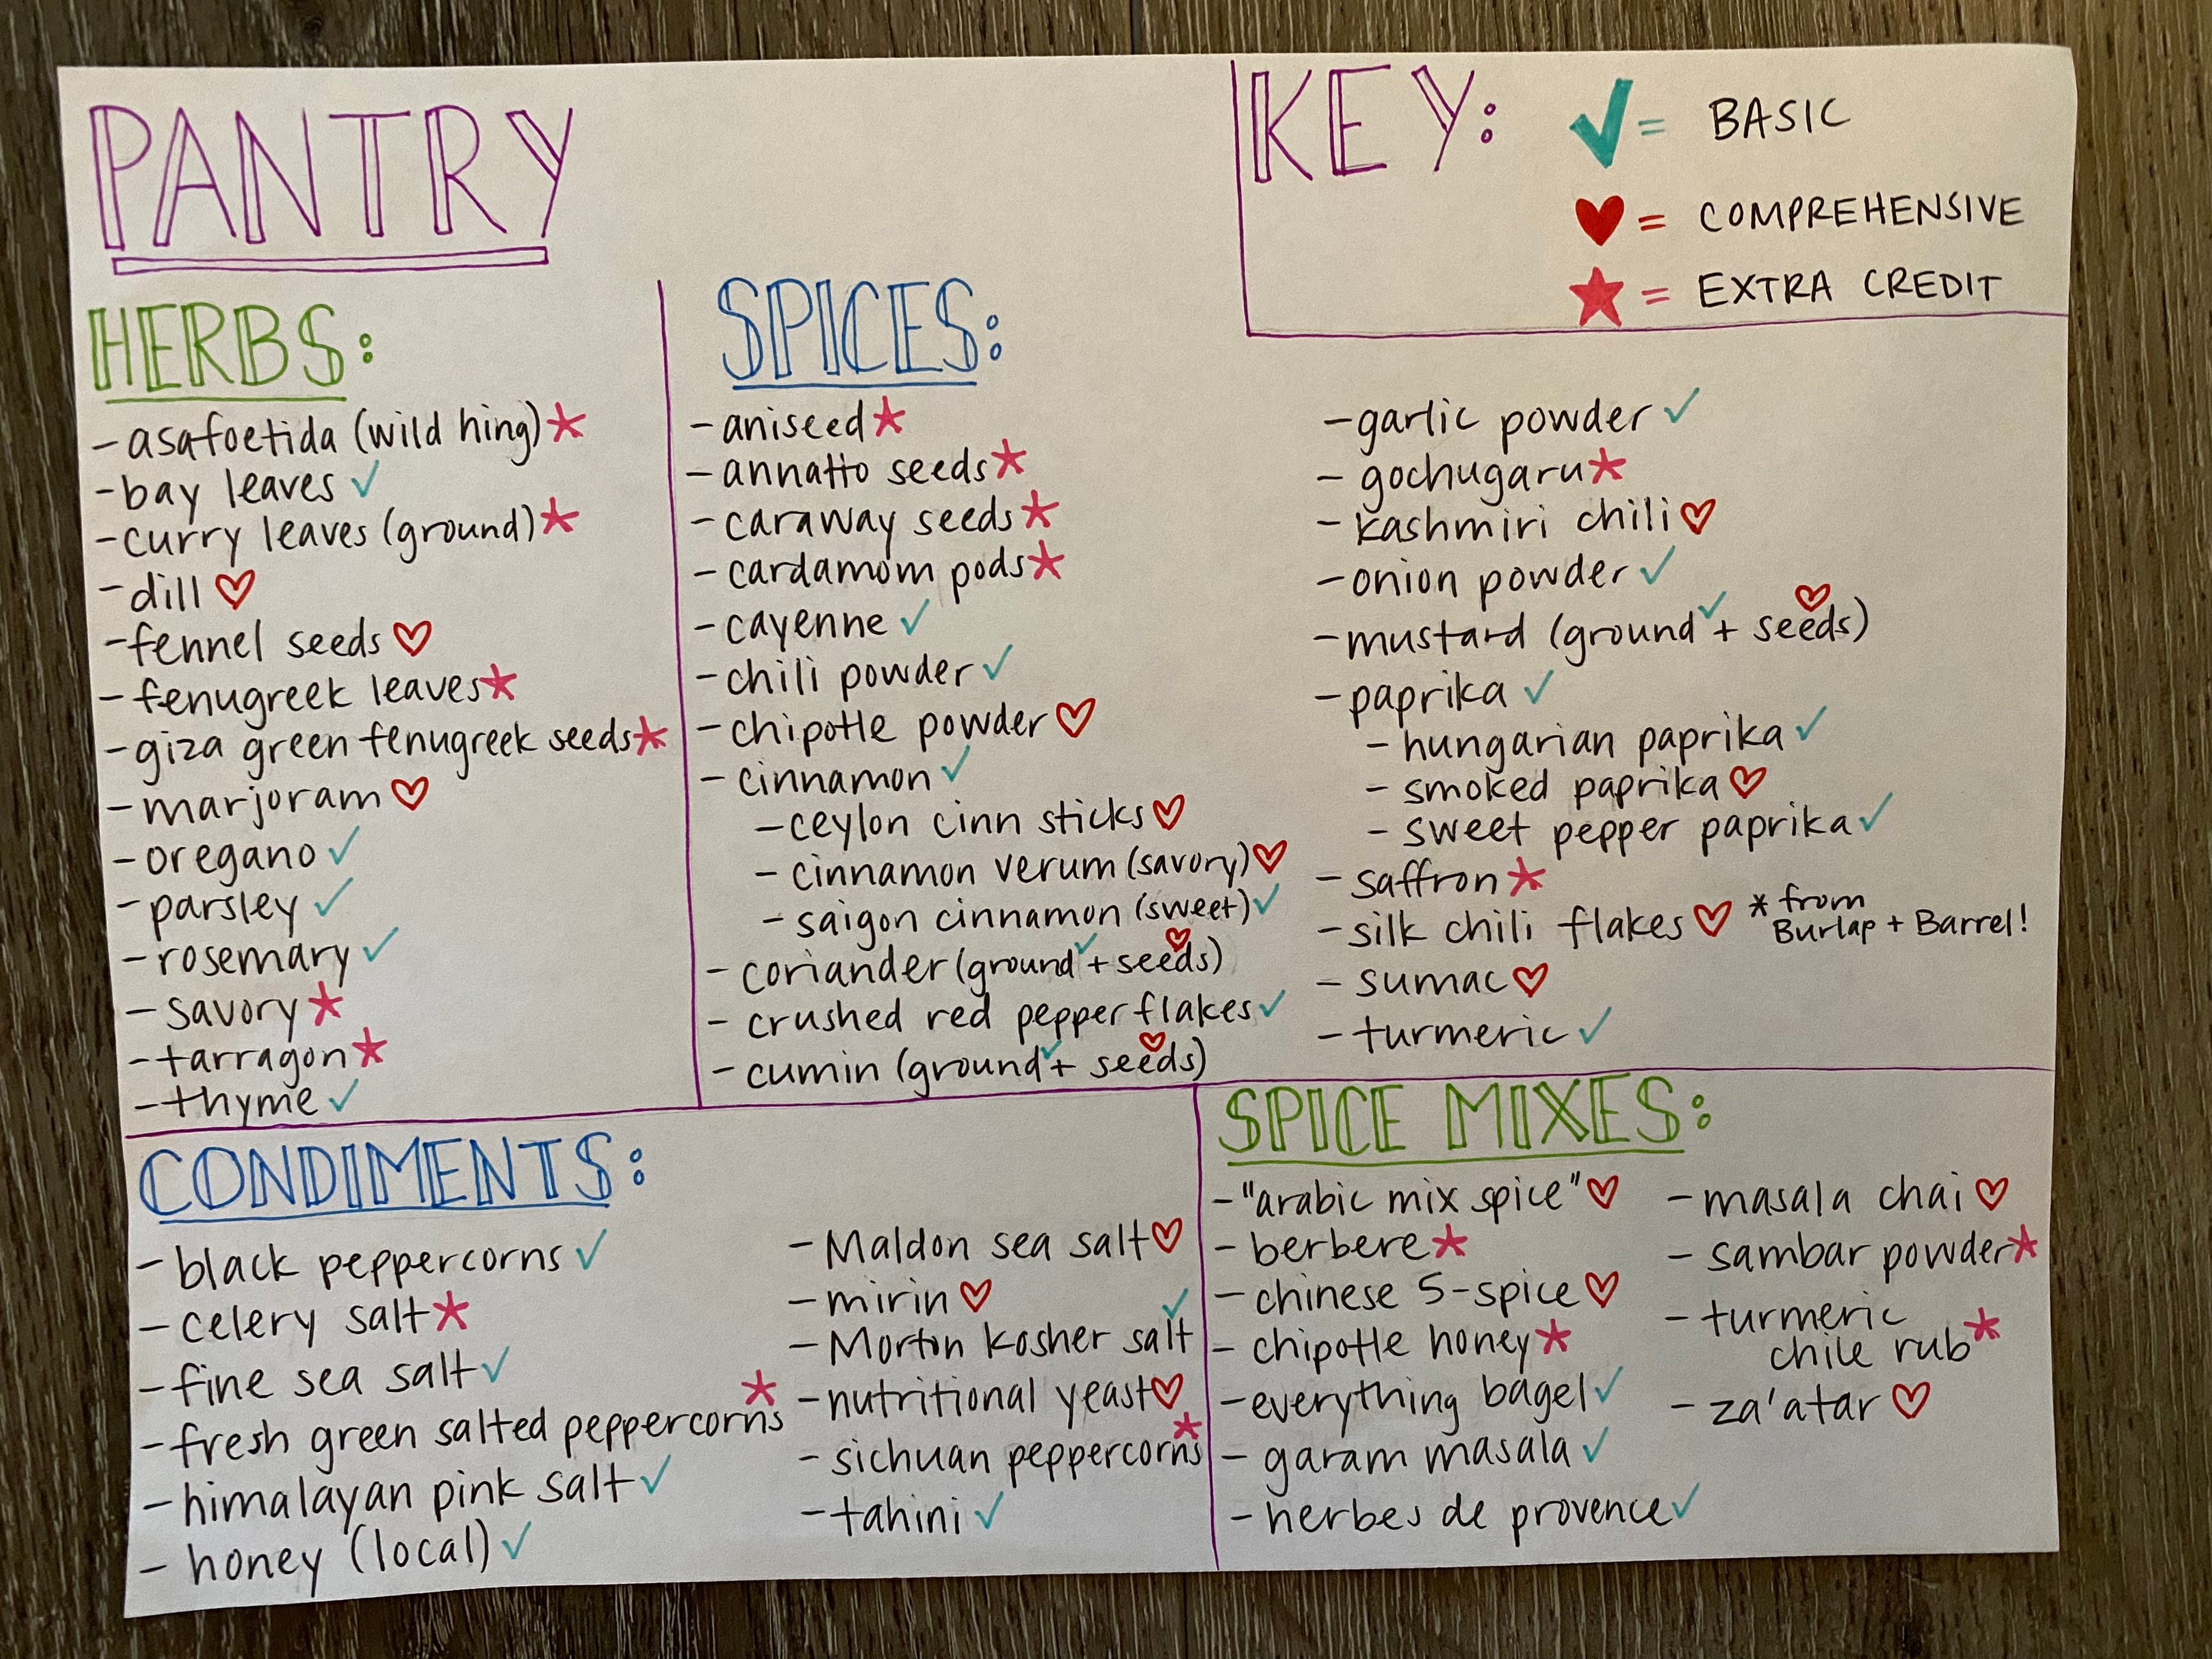 PANTRY
KEY:
✓ = BASIC
♥ = COMPREHENSIVE
★ = EXTRA CREDIT
HERBS:
- asafoetida (wild hing) *
- bay leaves ✓
- curry leaves (ground) *
- dill ♡
- fennel seeds ♡
- fenugreek leaves *
- giza green fenugreek seeds *
- marjoram ♡
- oregano ✓
- parsley ✓
- rosemary ✓
- savory *
- tarragon *
- thyme ✓
SPICES:
- aniseed *
- annatto seeds *
- caraway seeds *
- cardamom pods *
- cayenne ✓
- chili powder ✓
- chipotle powder ♡
- cinnamon ✓
- ceylon cinn sticks ♡
- cinnamon verum (savory) ♡
- saigon cinnamon (sweet) ✓
- coriander (ground ✓ + seeds ♡)
- crushed red pepper flakes ✓
- cumin (ground ✓ + seeds ♡)
- garlic powder ✓
- gochugaru *
- kashmiri chili ♡
- onion powder ✓
- mustard (ground ✓ + seeds ♡)
- paprika ✓
- hungarian paprika ✓
- smoked paprika ♡
- sweet pepper paprika ✓
- saffron *
- silk chili flakes ♡ * from
Burlap + Barrel!
- sumac ♡
- turmeric ✓
CONDIMENTS:
- black peppercorns ✓
- celery salt *
- fine sea salt ✓
- fresh green salted peppercorns *
- himalayan pink salt ✓
- honey (local) ✓
- Maldon sea salt ♡
- mirin ♡
- Morton kosher salt ✓
- nutritional yeast ♡
- sichuan peppercorns *
- tahini ✓
SPICE MIXES:
- "arabic mix spice" ♡
- berbere *
- chinese 5-spice ♡
- chipotle honey *
- everything bagel ✓
- garam masala ✓
- herbes de provence ✓
- masala chai ♡
- sambar powder *
- turmeric
chile rub *
- za'atar ♡